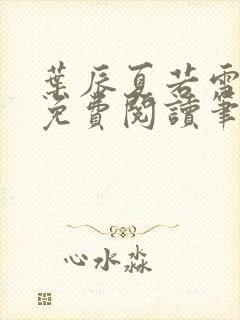 葉辰夏若雪
免費閱讀筆
心水淼